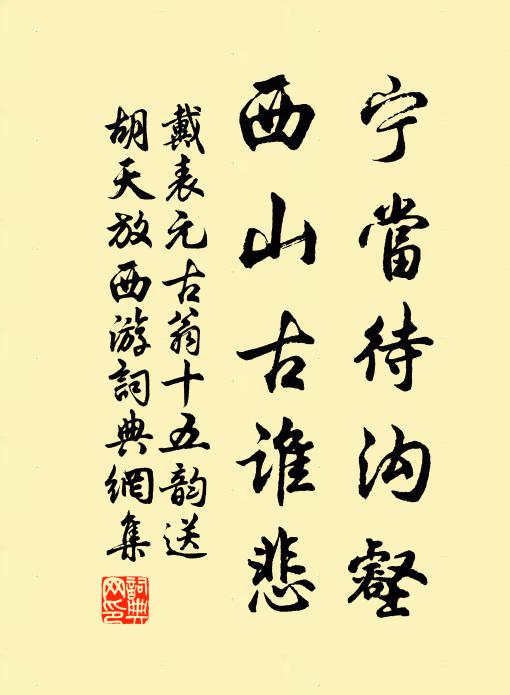 宁當待沟壑
西山古谁悲
戴表元古翁十五韵送
胡天放西游詞典網集